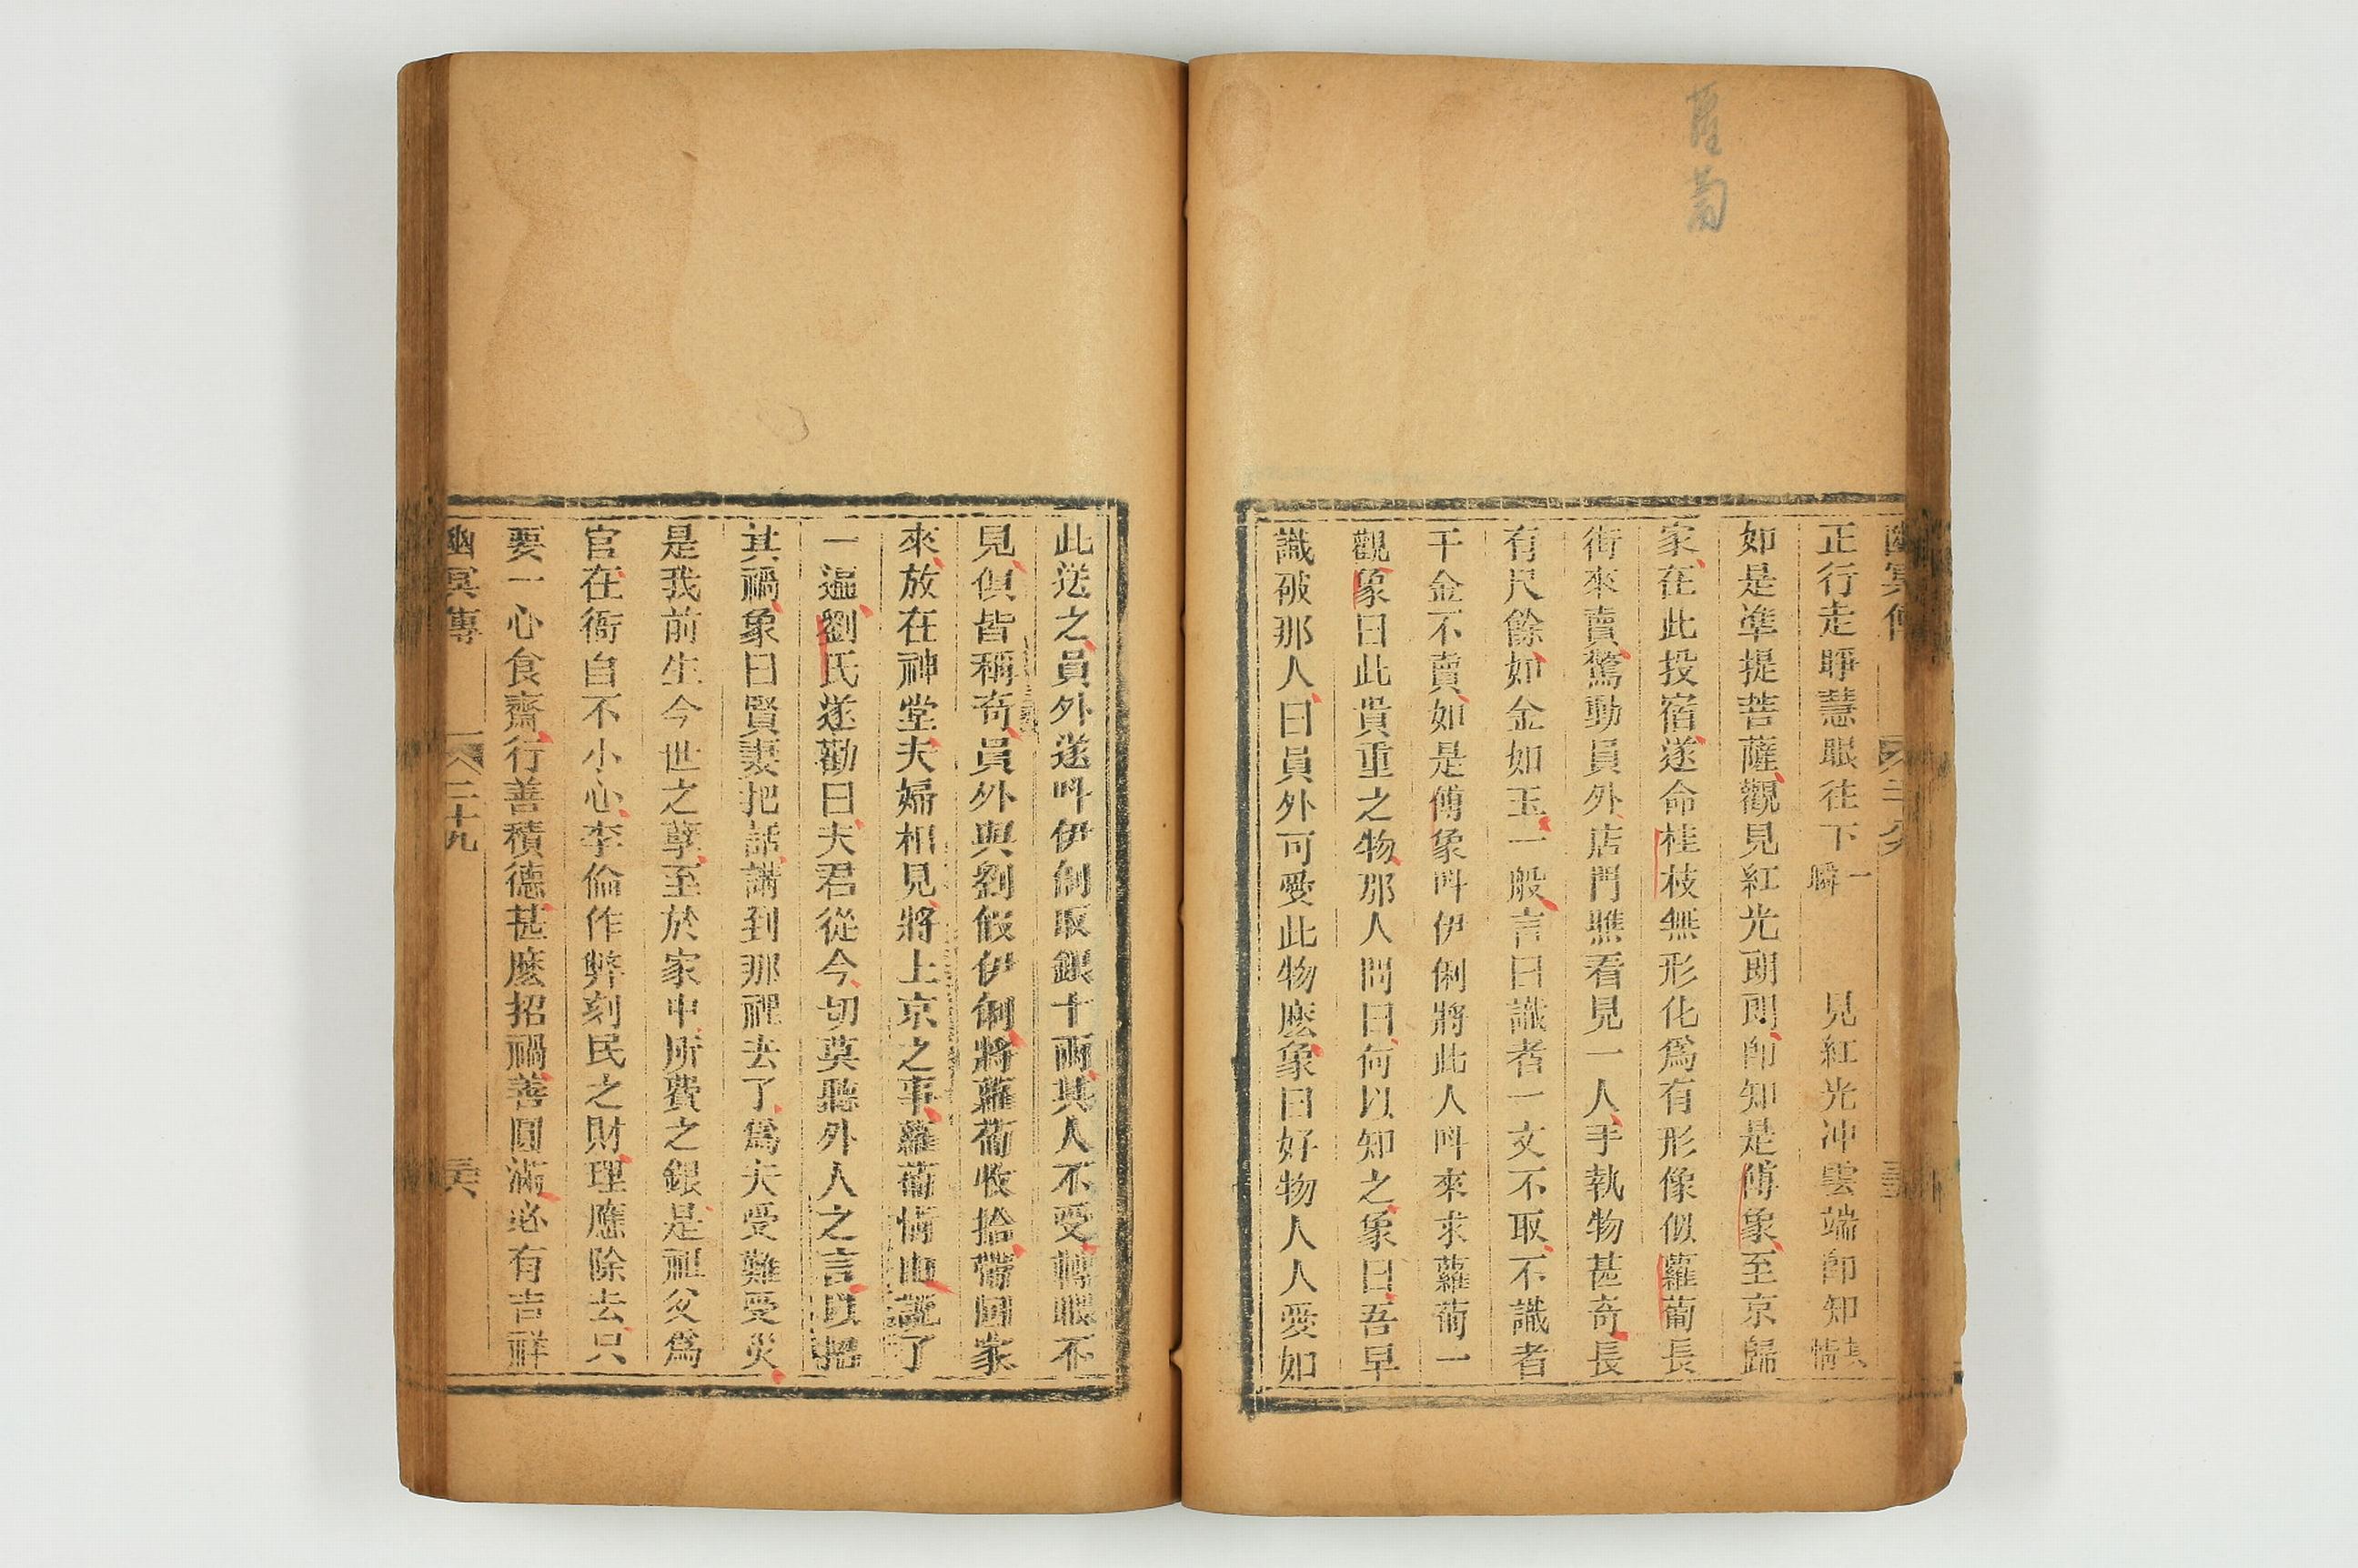 蘿蔔
正行走睜慧眼往下一瞬見紅光冲雲端即知其情
如是準提菩薩觀見紅光朗朗即知是傅象至京歸
家在此投宿遂命桂枝無形化爲有形像似蘿蔔長
街來賣驚動員外店門瞧看見一人手執物甚奇長
有尺餘如金如玉一般言曰識者一文不取不識者
千金不賣如是傅象呌伊俐將此人呌來求蘿蔔一
觀象曰此貴重之物那人問曰何以知之象曰吾早
識破那人曰員外可愛此物麽象曰好物人人愛如
此送之員外遂呌伊俐取銀十兩其人不受轉眼不
見俱皆稱奇員外與劉假伊俐將蘿蔔收拾帶回家
來放在神堂夫婦相見將上京之事蘿蔔情由説了
一遍劉氏遂勸曰夫君從今切莫聽外人之言以招
其禍象曰賢妻把話講到那裡去了爲夫受難受災
是我前生今世之孽至於家中所費之銀是祖父爲
官在衙自不小心李倫作弊刻民之財理應除去只
要一心食齋行善積德甚麽招禍善圓滿必有吉祥
幽冥傳 三十九